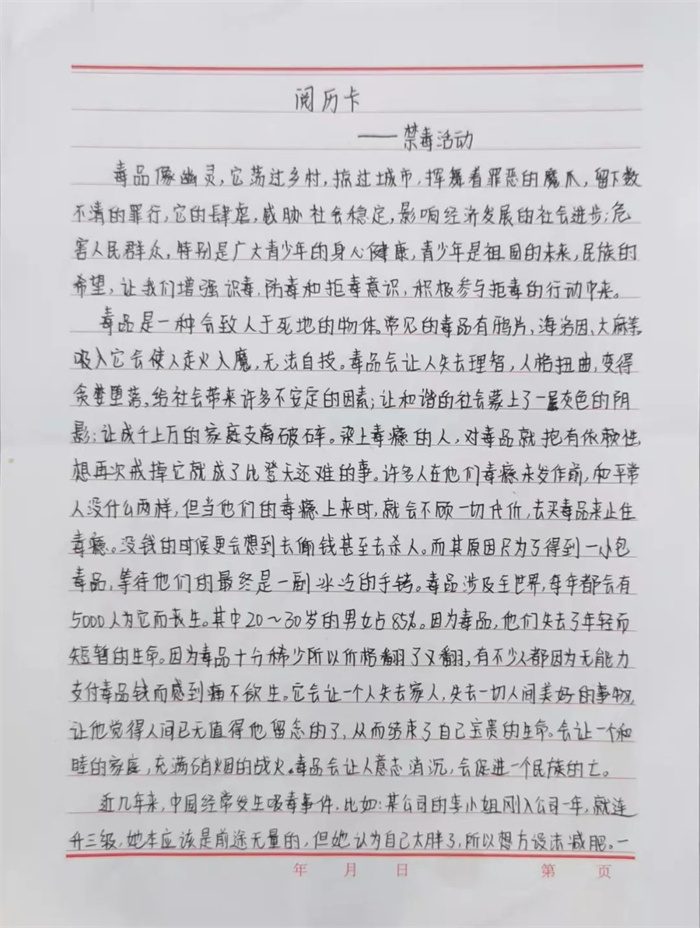 阅历卡
——禁毒活动
毒品像幽灵,它荡过乡村,掠过城市,挥舞着罪恶的魔爪,留下数
不清的罪行,它的肆虐,威胁社会稳定,影响经济发展的社会进步;危
害人民群众,特别是广大青少年的身心健康,青少年是祖国的未来,民族的
希望,让我们增强识毒、防毒和拒毒意识,积极参与拒毒的行动中来。
毒品是一种会致人于死地的物体。常见的毒品有鸦片,海洛因、大麻等
吸入它会使人走火入魔,无法自拔。毒品会让人失去理智,人格扭曲,变得
贪婪堕落,给社会带来许多不安定的因素;让和谐的社会蒙上了一层灰色的阴
影;让成千上万的家庭支离破碎。染上毒瘾的人,对毒品就抱有依赖性,
想再次戒掉它就成了比登天还难的事。许多人在他们毒瘾未发作前,和平常
人没什么两样,但当他们的毒瘾上来时,就会不顾一切代价,去买毒品来止住
毒瘾。没钱的时候更会想到去偷钱甚至去杀人。而其原因只为了得到一小包
毒品,等待他们的最终是一副冰冷的手铐。毒品涉及全世界,每年都会有
5000人为它而丧生。其中20~30岁的男女占85%。因为毒品,他们失去了年轻而
短暂的生命。因为毒品十分稀少所以价格翻了又翻,有不少人都因为无能力
支付毒品钱而感到痛不欲生。它会让一个人失去家人,失去一切人间美好的事物,
让他觉得人间已无值得他留念的了,从而结束了自己宝贵的生命。会让一个和
睦的家庭,充满硝烟的战火。毒品会让人意志消沉,会促进一个民族的亡。
近几年来,中国经常发生吸毒事件,比如:某公司的李小姐刚入公司一年,就连
升三级,她本应该是前途无量的,但她认为自己太胖了,所以想方设法减肥。一
年 月 日 第 页